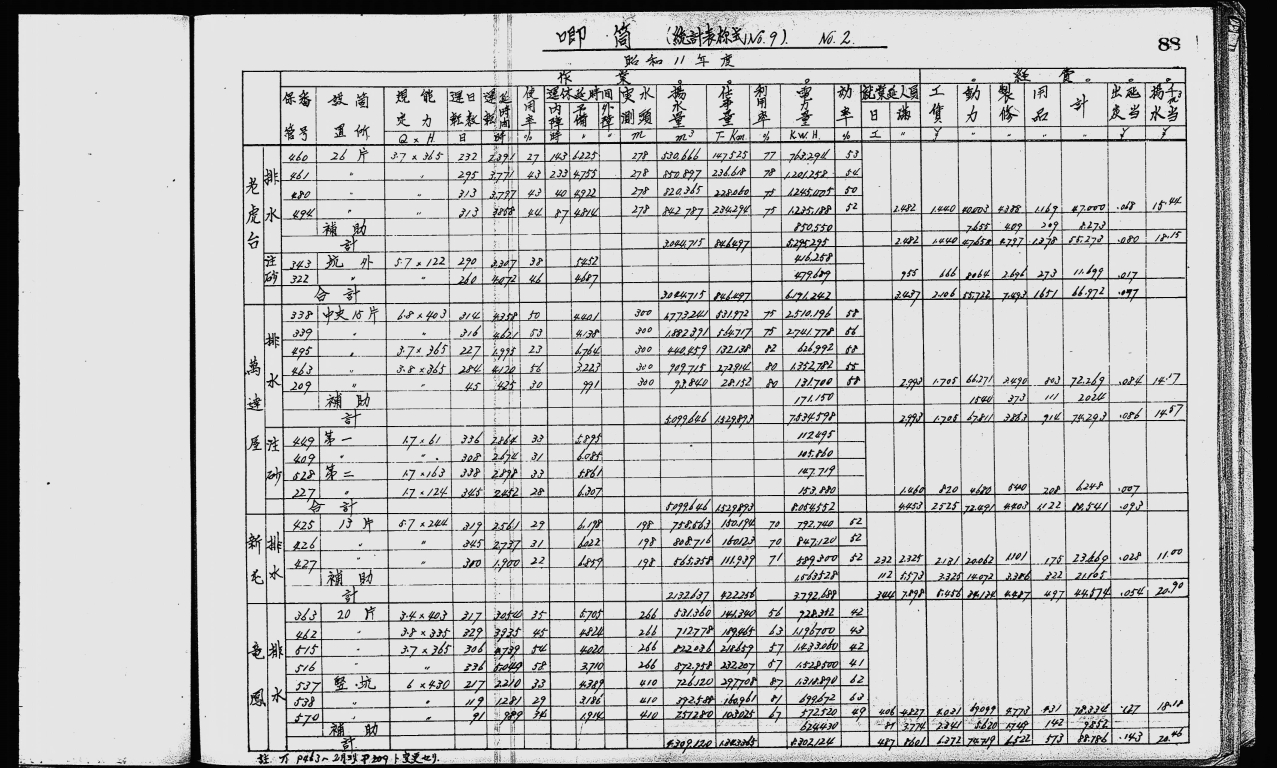 喞筒 (統計表様式No.9). No.2.
88
昭和11年度
作業 経費
保番 設箇 規能 運日 運延時間 使用率 運休延時間 実水 揚水量 仕事量 利用率 電力量 功率 就業延人員 工賃 動力 製修 用品 計 出延 揚千m³
管号 置所 定力 転数 転数 内障 予備 外障 測頭 日 満 炭当 水当
Q × H. 日 時 % 時 〃 〃 m m³ T-Km % K.W.H. % 工 〃 ¥ 〃 〃 〃 〃 ¥ ¥
老虎台 排水
460 26片 3.7×365 232 2.391 27 143 6.225 278 530.666 147.525 77 763.294 53
461 〃 〃 295 3.771 43 233 4.755 278 850.897 236.618 78 1.201.258 54
480 〃 〃 313 3.797 43 40 4.922 278 820.365 228.060 75 1.245.005 50
494 〃 〃 313 3.858 44 87 4.814 278 842.787 234.294 75 1.235.188 52 2.482 1.440 40.003 4.388 1.169 47.000 .068 15.44
補助 850.550 7.655 409 209 8.273
計 3.044.715 846.497 5.295.295 2.482 1.440 47.658 4.797 1.378 55.273 .080 18.15
注砂
343 坑外 5.7×122 290 3.307 38 5.452 416.258
322 〃 〃 260 4.072 46 4.687 479.689 955 666 8.064 2.696 273 11.699 .017
合計 3.044.715 846.497 6.191.242 3.437 2.106 55.722 7.493 1.651 66.972 .097
萬達屋 排水
338 中央15片 6.8×403 314 4.358 50 4.401 300 1.773.241 531.972 75 2.510.196 58
339 〃 〃 316 4.621 53 4.138 300 1.882.391 564.717 75 2.741.778 56
495 〃 3.7×365 227 1.995 23 6.764 300 440.459 132.138 82 626.992 58
463 〃 3.8×365 284 4.120 56 3.223 300 909.715 272.914 80 1.352.782 55
209 〃 〃 45 425 30 991 300 93.840 28.152 80 131.700 58 2.993 1.705 66.271 3.490 803 72.269 .084 14.17
補助 171.150 1.540 373 111 2.024
計 5.099.646 1.529.893 7.534.598 2.993 1.705 67.811 3.863 914 74.293 .086 14.57
注砂
449 第一 1.7×61 336 2.864 33 5.895 112.495
409 〃 〃 308 2.674 31 6.085 105.860
528 第二 1.7×163 338 2.898 33 5.861 147.719
227 〃 1.7×124 345 2.452 28 6.307 153.880 1.460 820 4.680 540 208 6.248 .007
合計 5.099.646 1.529.893 8.054.552 4.453 2.525 72.491 4.403 1.122 80.541 .093
新屯 排水
425 13片 5.7×244 319 2.561 29 6.198 198 758.563 150.194 70 792.740 52
426 〃 〃 345 2.737 31 6.022 198 808.716 160.123 70 847.120 52
427 〃 〃 300 1.900 22 6.859 198 565.358 111.939 71 589.300 52 232 2.325 2.131 20.062 1.101 175 23.669 .028 11.00
補助 1.563.528 112 5.573 3.325 14.072 3.386 322 21.105
計 2.132.637 422.256 3.792.688 344 7.898 5.456 34.134 4.487 497 44.574 .054 20.90
竜鳳 排水
363 20片 3.4×403 317 3.054 35 5.705 266 531.360 141.340 56 928.312 42
462 〃 3.8×335 329 3.935 45 4.824 266 712.778 189.465 63 1.196.700 43
515 〃 3.7×365 306 4.739 54 4.020 266 822.036 218.659 57 1.433.060 42
516 〃 〃 336 5.049 58 3.710 266 872.958 232.207 57 1.528.500 41
537 竪坑 6×430 217 2.210 33 4.389 410 726.120 297.708 87 1.310.890 62
538 〃 〃 119 1.281 29 3.186 410 392.588 160.961 81 699.672 63
570 〃 〃 91 989 34 1.914 410 251.280 103.025 67 572.520 49 406 4.827 4.031 69.099 4.773 431 78.334 .127 18.18
補助 624.430 81 3.774 2.341 5.620 1.749 142 9.852
計 4.309.120 1.343.365 8.302.124 487 8.601 6.372 74.719 6.522 573 88.186 .143 20.46